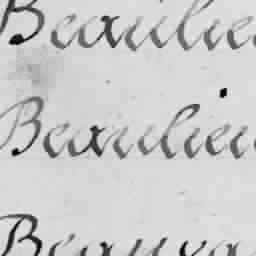 Beaulieu
Beaulieu
Beauva